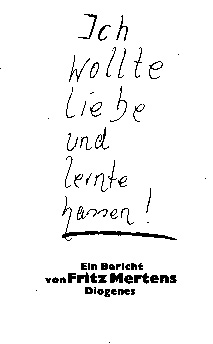 Ich
wollte
liebe
und
lernte
hassen!
Ein Bericht
von Fritz Mertens
Diogenes